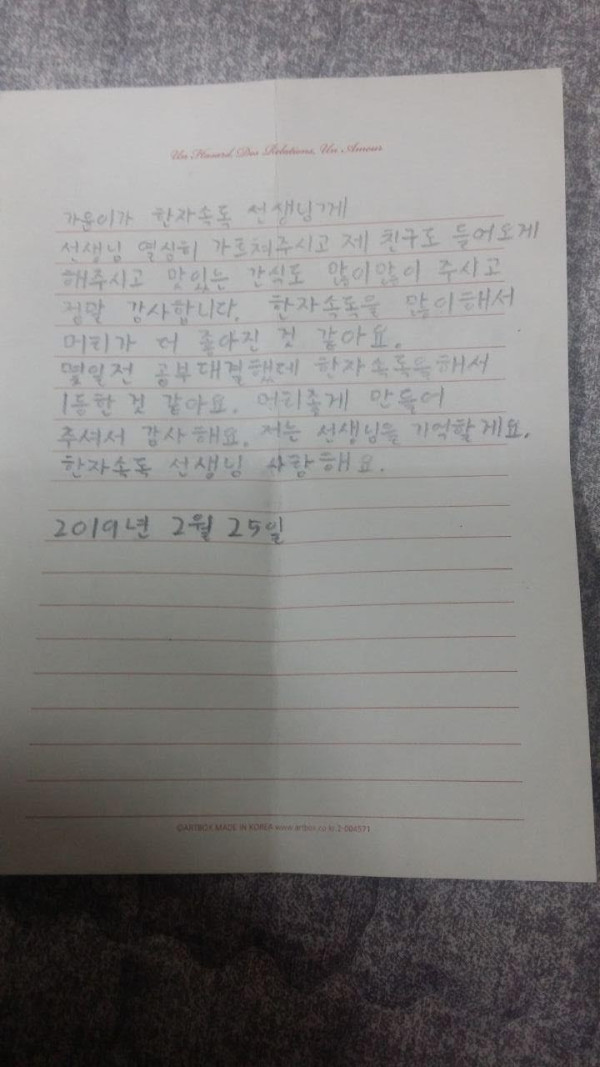 Un Hasard, Des Relations, Un Amour
가윤이가 한자속독 선생님께
선생님 열심히 가르쳐주시고 제 친구도 들어오게
해주시고 맛있는 간식도 많이많이 주시고
정말 감사합니다. 한자속독을 많이해서
머리가 더 좋아진 것 같아요.
몇일전 공부대결했는데 한자속독을해서
1등한 것 같아요. 머리좋게 만들어
주셔서 감사해요. 저는 선생님을 기억할게요.
한자속독 선생님 사랑해요.
2019년 2월 25일
©ARTBOX MADE IN KOREA www.artbox.co.kr